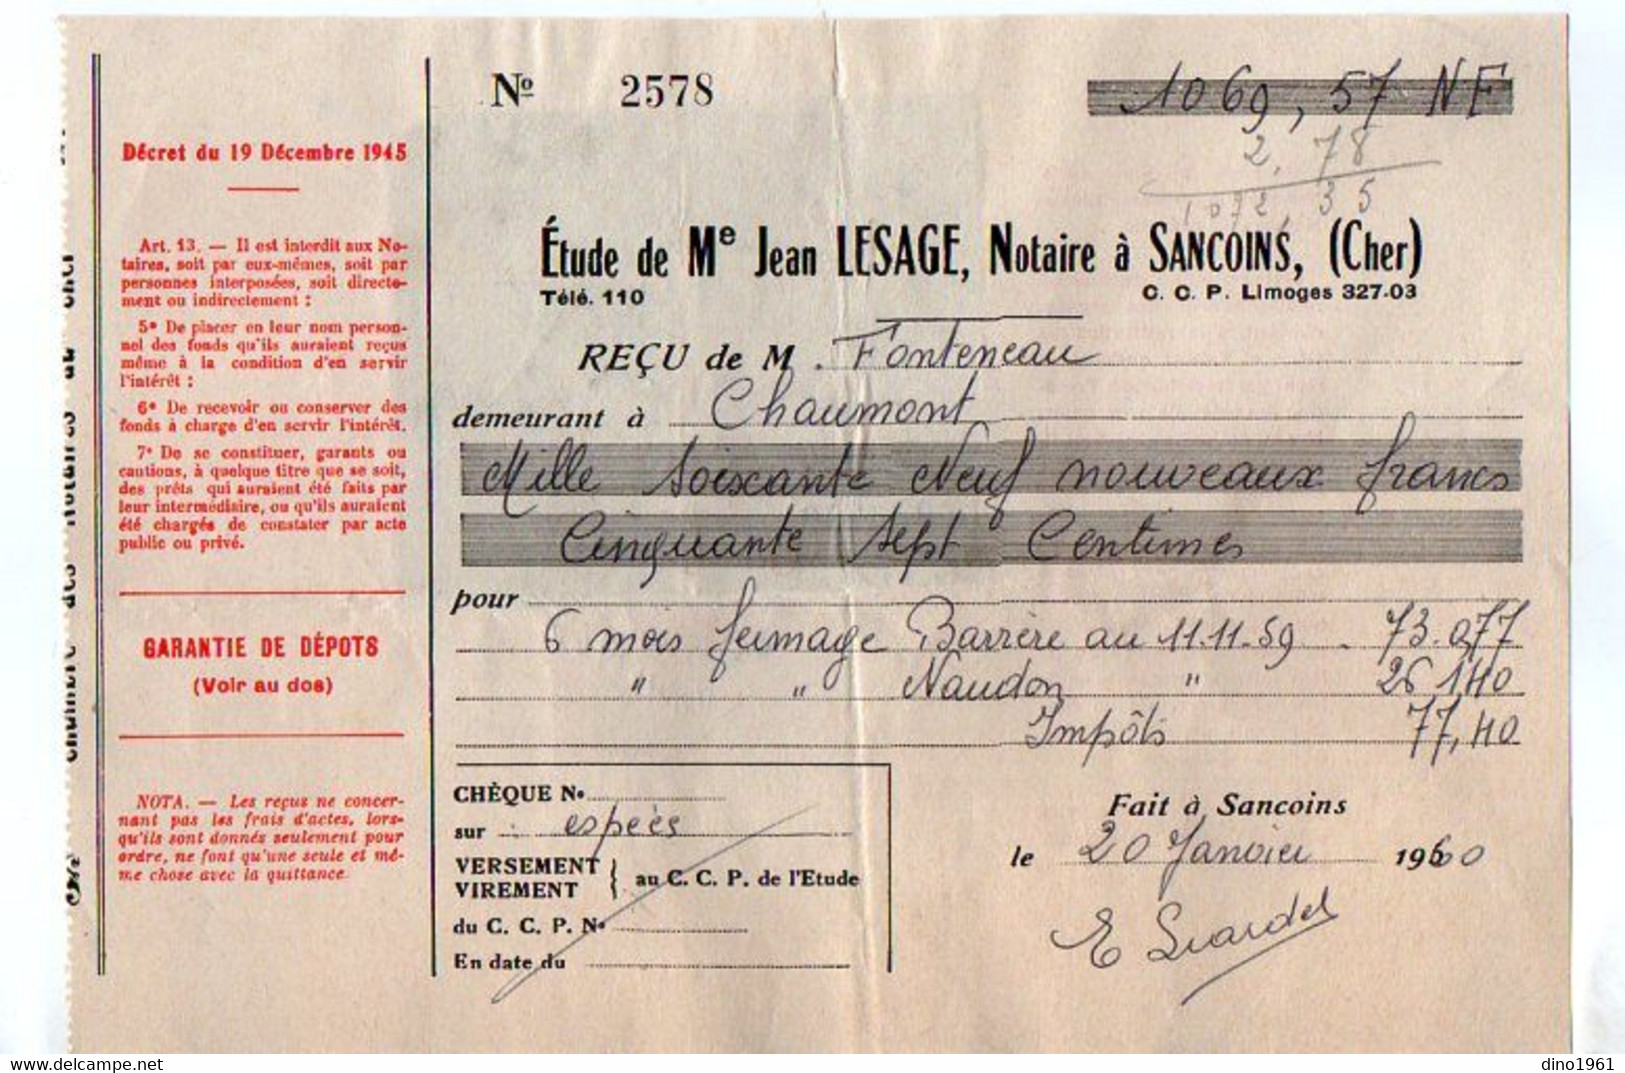 chambre des Notaires du Cher
Décret du 19 Décembre 1945
Art. 13. — Il est interdit aux No-
taires, soit par eux-mêmes, soit par
personnes interposées, soit directe-
ment ou indirectement :
5° De placer en leur nom person-
nel des fonds qu'ils auraient reçus
même à la condition d'en servir
l'intérêt ;
6° De recevoir ou conserver des
fonds à charge d'en servir l'intérêt.
7° De se constituer, garants ou
cautions, à quelque titre que se soit,
des prêts qui auraient été faits par
leur intermédiaire, ou qu'ils auraient
été chargés de constater par acte
public ou privé.
GARANTIE DE DÉPOTS
(Voir au dos)
NOTA. — Les reçus ne concer-
nant pas les frais d'actes, lors-
qu'ils sont donnés seulement pour
ordre, ne font qu'une seule et mê-
me chose avec la quittance.
No 2578
1069,57 NF
2,78
1072,35
Étude de Me Jean LESAGE, Notaire à SANCOINS, (Cher)
Télé. 110 C. C. P. Limoges 327-03
REÇU de M. Fonteneau
demeurant à Chaumont
Mille soixante Neuf nouveaux francs
Cinquante sept Centimes
pour
6 mois fermage Barrère au 11.11.59 - 73.077
" " Naudon " 26,140
Impôts 77,40
CHÈQUE No
sur espèces
VERSEMENT
VIREMENT } au C. C. P. de l'Etude
du C. C. P. No
En date du
Fait à Sancoins
le 20 Janvier 1960
dino1961